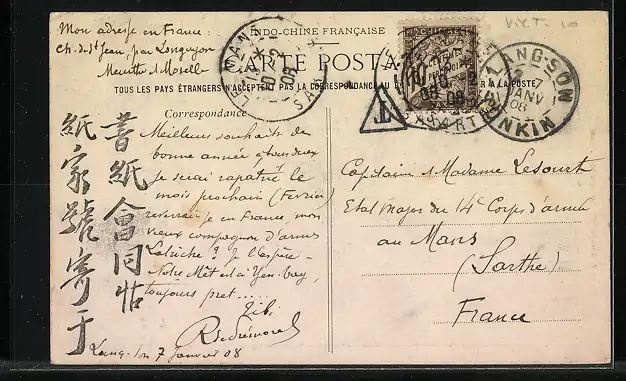 Mon adresse en France
Ch. de St Jean par Longuyon
Meurthe et Moselle
INDO-CHINE FRANÇAISE
CARTE POSTALE
TOUS LES PAYS ÉTRANGERS N'ACCEPTENT PAS LA CORRESPONDANCE AU
À LA POSTE
LE MANS
SARTHE
LANG-SON
7
JANV
08
TONKIN
T
Correspondance
Meilleurs souhaits de
bonne année à tous deux
Je serai rapatrié le
mois prochain (Février)
je en France, mon
vieux compagnon d'armes
? Je l'espère
Notre est à Yen-bay,
toujours pret.....
Lang-Son 7 Janvier 08
書紙會同帖
紙家號寄于
Capitaine & Madame Lesourt
Etat Major du 14e Corps d'armée
au Mans
(Sarthe)
France